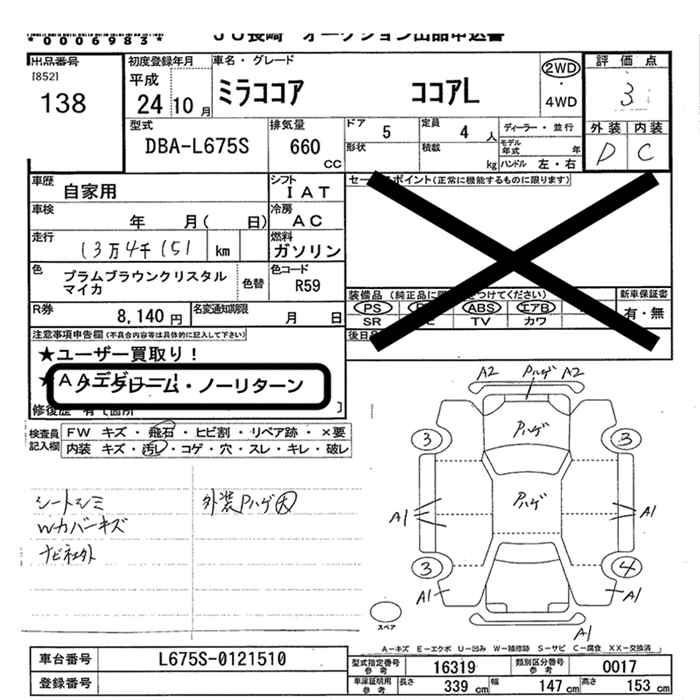 *0006983* JU長崎 オークション出品申込書
出品番号 [852] 138
初度登録年月 平成 24 10 月
車名・グレード ミラココア ココアL
2WD ・ 4WD
評価点 3
外装 内装
D C
型式 DBA-L675S
排気量 660 CC
ドア 5 定員 4 人
形状 積載 kg
ディーラー・並行
モデル年式 年
ハンドル 左・右
車歴 自家用
シフト IAT
車検 年 月( 日)
冷房 AC
走行 13万4千151 km
燃料 ガソリン
色 プラムブラウンクリスタルマイカ 色替
色コード R59
R券 8,140円 名変通知期限 月 日
セールスポイント(正常に機能するものに限ります)
装備品
PS ABS エアB
SR TV カワ
新車保証書 有・無
後日
注意事項申告欄(不具合内容等は具体的に記入して下さい)
★ユーザー買取り!
★AAデビュー!
ノークレーム・ノーリターン
修復歴 有(箇所 )
検査員記入欄
FW キズ・飛石・ヒビ割・リペア跡・×要
内装 キズ・汚し・コゲ・穴・スレ・キレ・破レ
シートシミ
Wカバーキズ
ナビネ外
外装Pハゲ大
A2 Pハゲ A2
Pハゲ
3 3
Pハゲ
A1 A1
3 4
A1 A1
A1
スペア
A-キズ E-エクボ U-凹み W-補修跡 S-サビ C-腐食 XX-交換済
車台番号 L675S-0121510
登録番号
型式指定番号参考 16319 類別区分番号参考 0017
車庫証明用参考 長さ 339 cm 幅 147 cm 高さ 153 cm